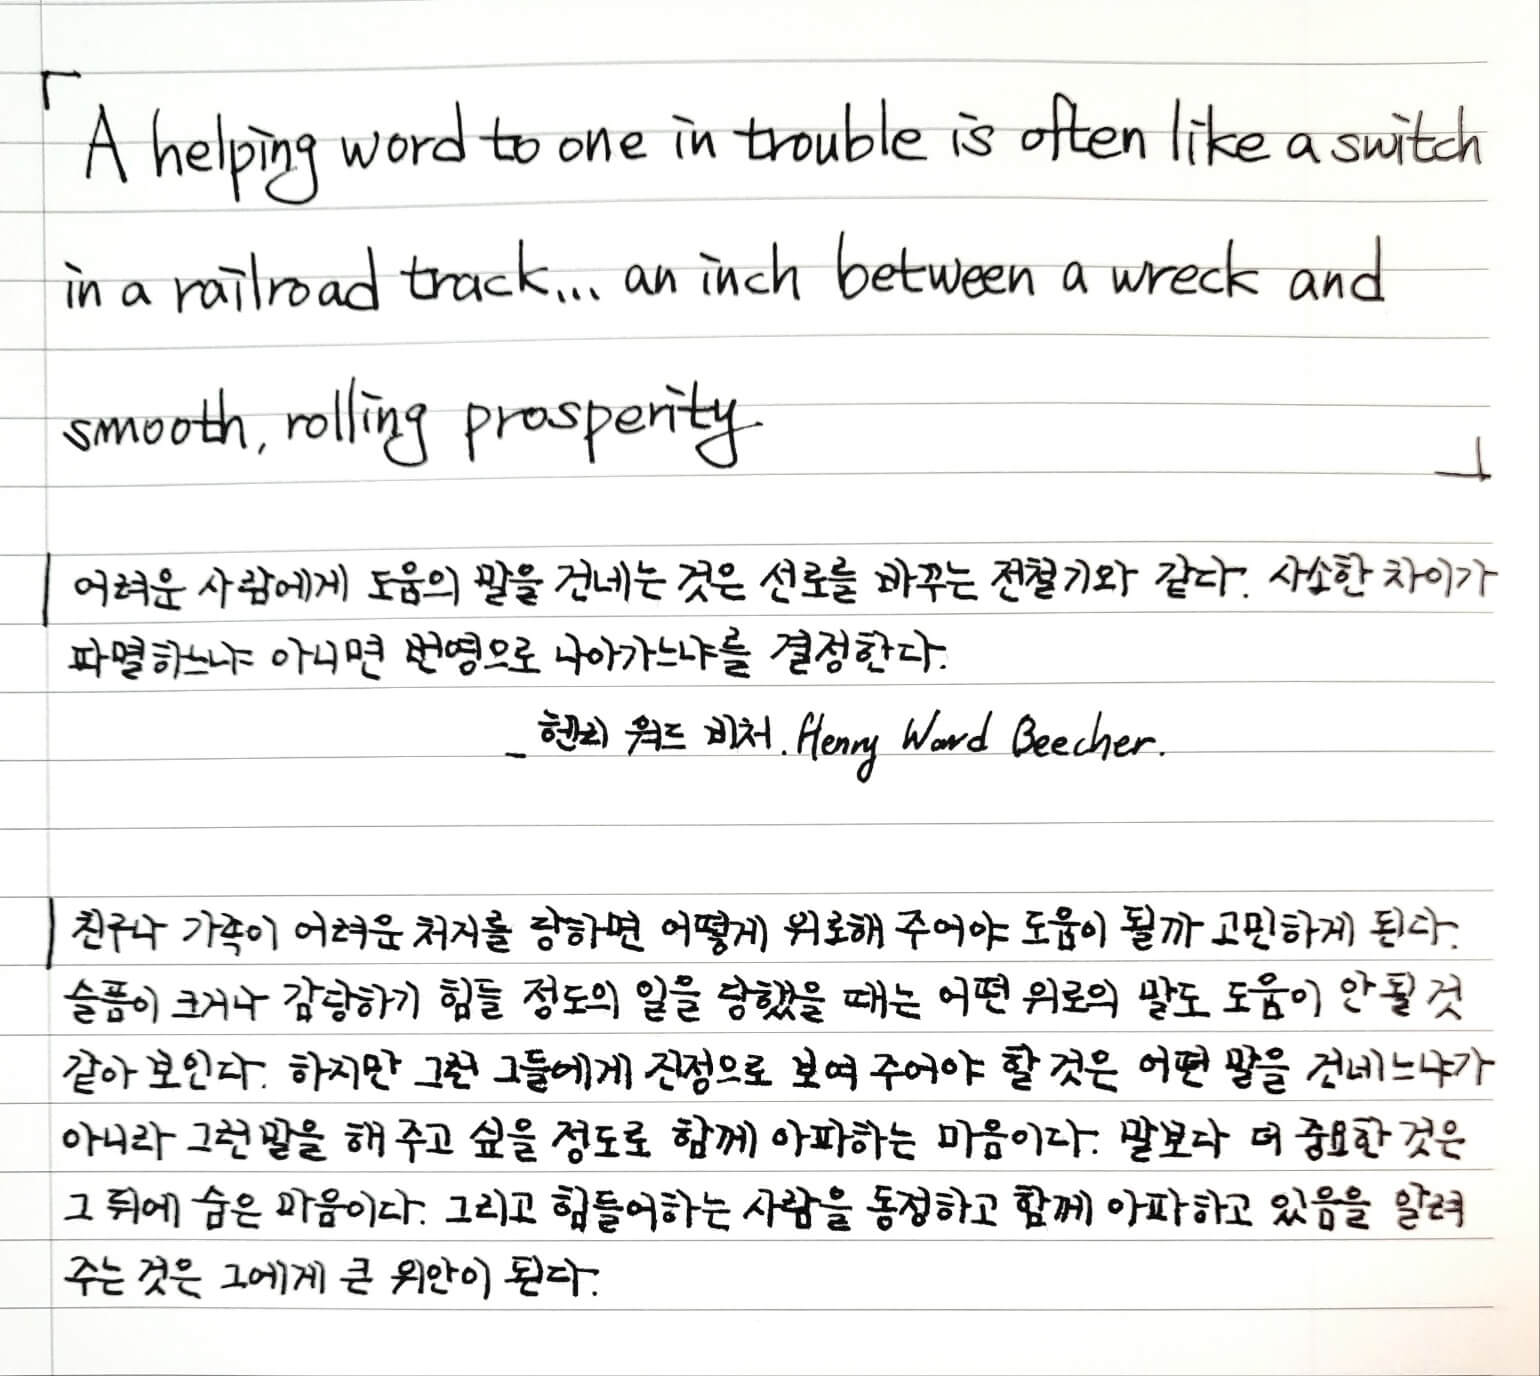 「A helping word to one in trouble is often like a switch
in a railroad track... an inch between a wreck and
smooth, rolling prosperity.」
어려운 사람에게 도움의 말을 건네는 것은 선로를 바꾸는 전철기와 같다. 사소한 차이가
파멸하느냐 아니면 번영으로 나아가느냐를 결정한다.
_ 헨리 워드 비처. Henry Ward Beecher.
친구나 가족이 어려운 처지를 당하면 어떻게 위로해 주어야 도움이 될까 고민하게 된다.
슬픔이 크거나 감당하기 힘들 정도의 일을 당했을 때는 어떤 위로의 말도 도움이 안 될 것
같아 보인다. 하지만 그런 그들에게 진정으로 보여 주어야 할 것은 어떤 말을 건네느냐가
아니라 그런 말을 해 주고 싶을 정도로 함께 아파하는 마음이다. 말보다 더 중요한 것은
그 뒤에 숨은 마음이다. 그리고 힘들어하는 사람을 동정하고 함께 아파하고 있음을 알려
주는 것은 그에게 큰 위안이 된다.